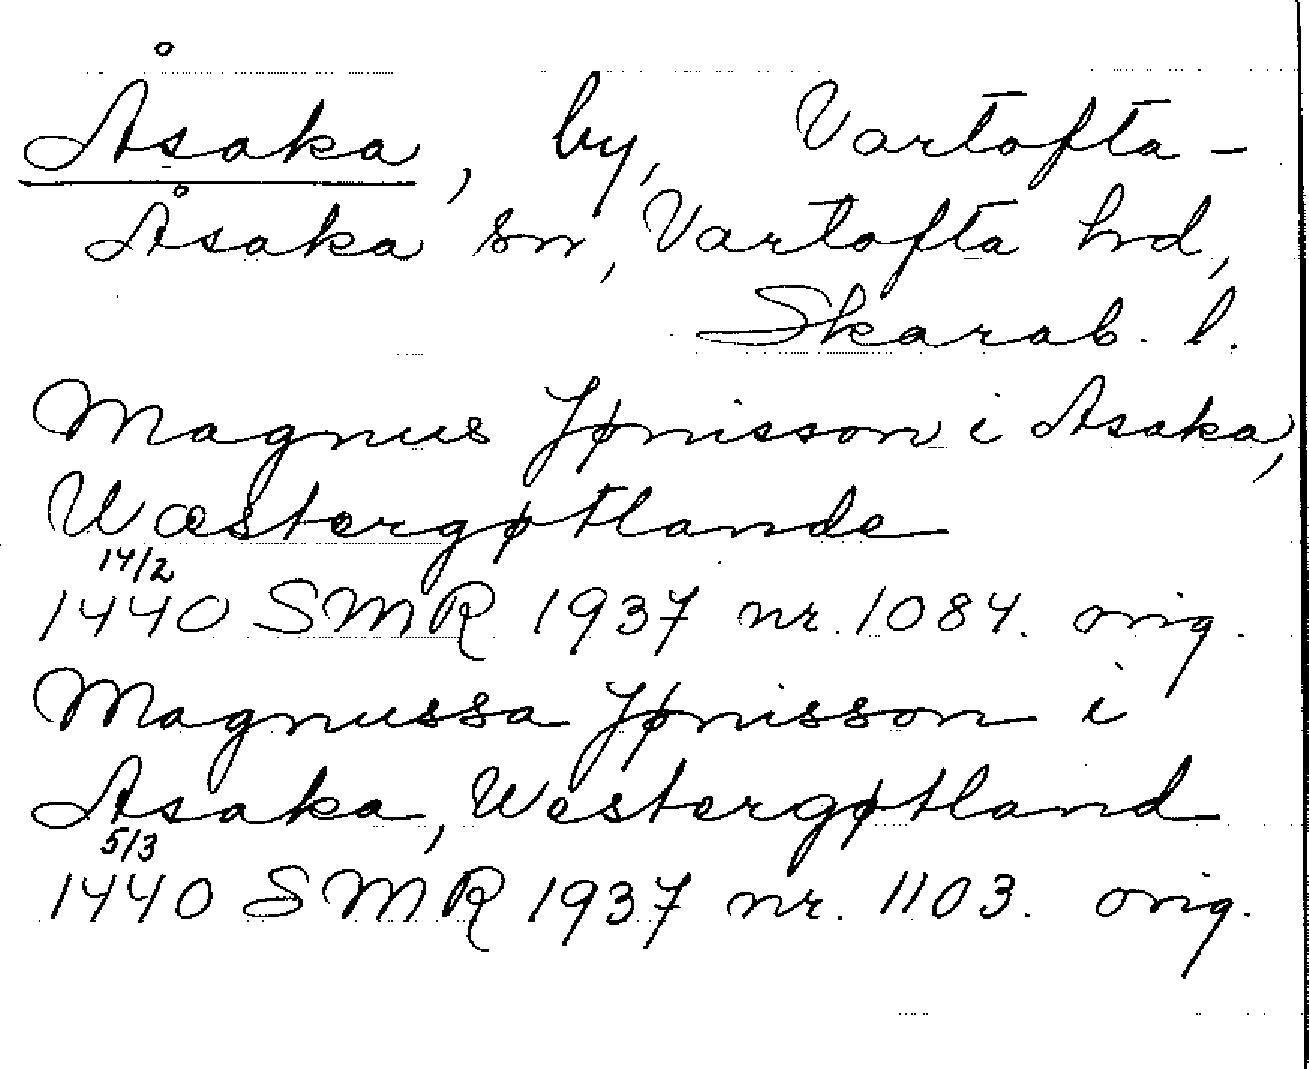 Åsaka, by, Vartofta-
Åsaka sn, Vartofta hd,
Skarab. l.
Magnus Jønisson i Asaka,
Wæstergøtlande
14/2
1440 SMR 1937 nr. 1084. orig.
Magnussa Jønisson i
Asaka, Westergøtland
5/3
1440 SMR 1937 nr. 1103. orig.